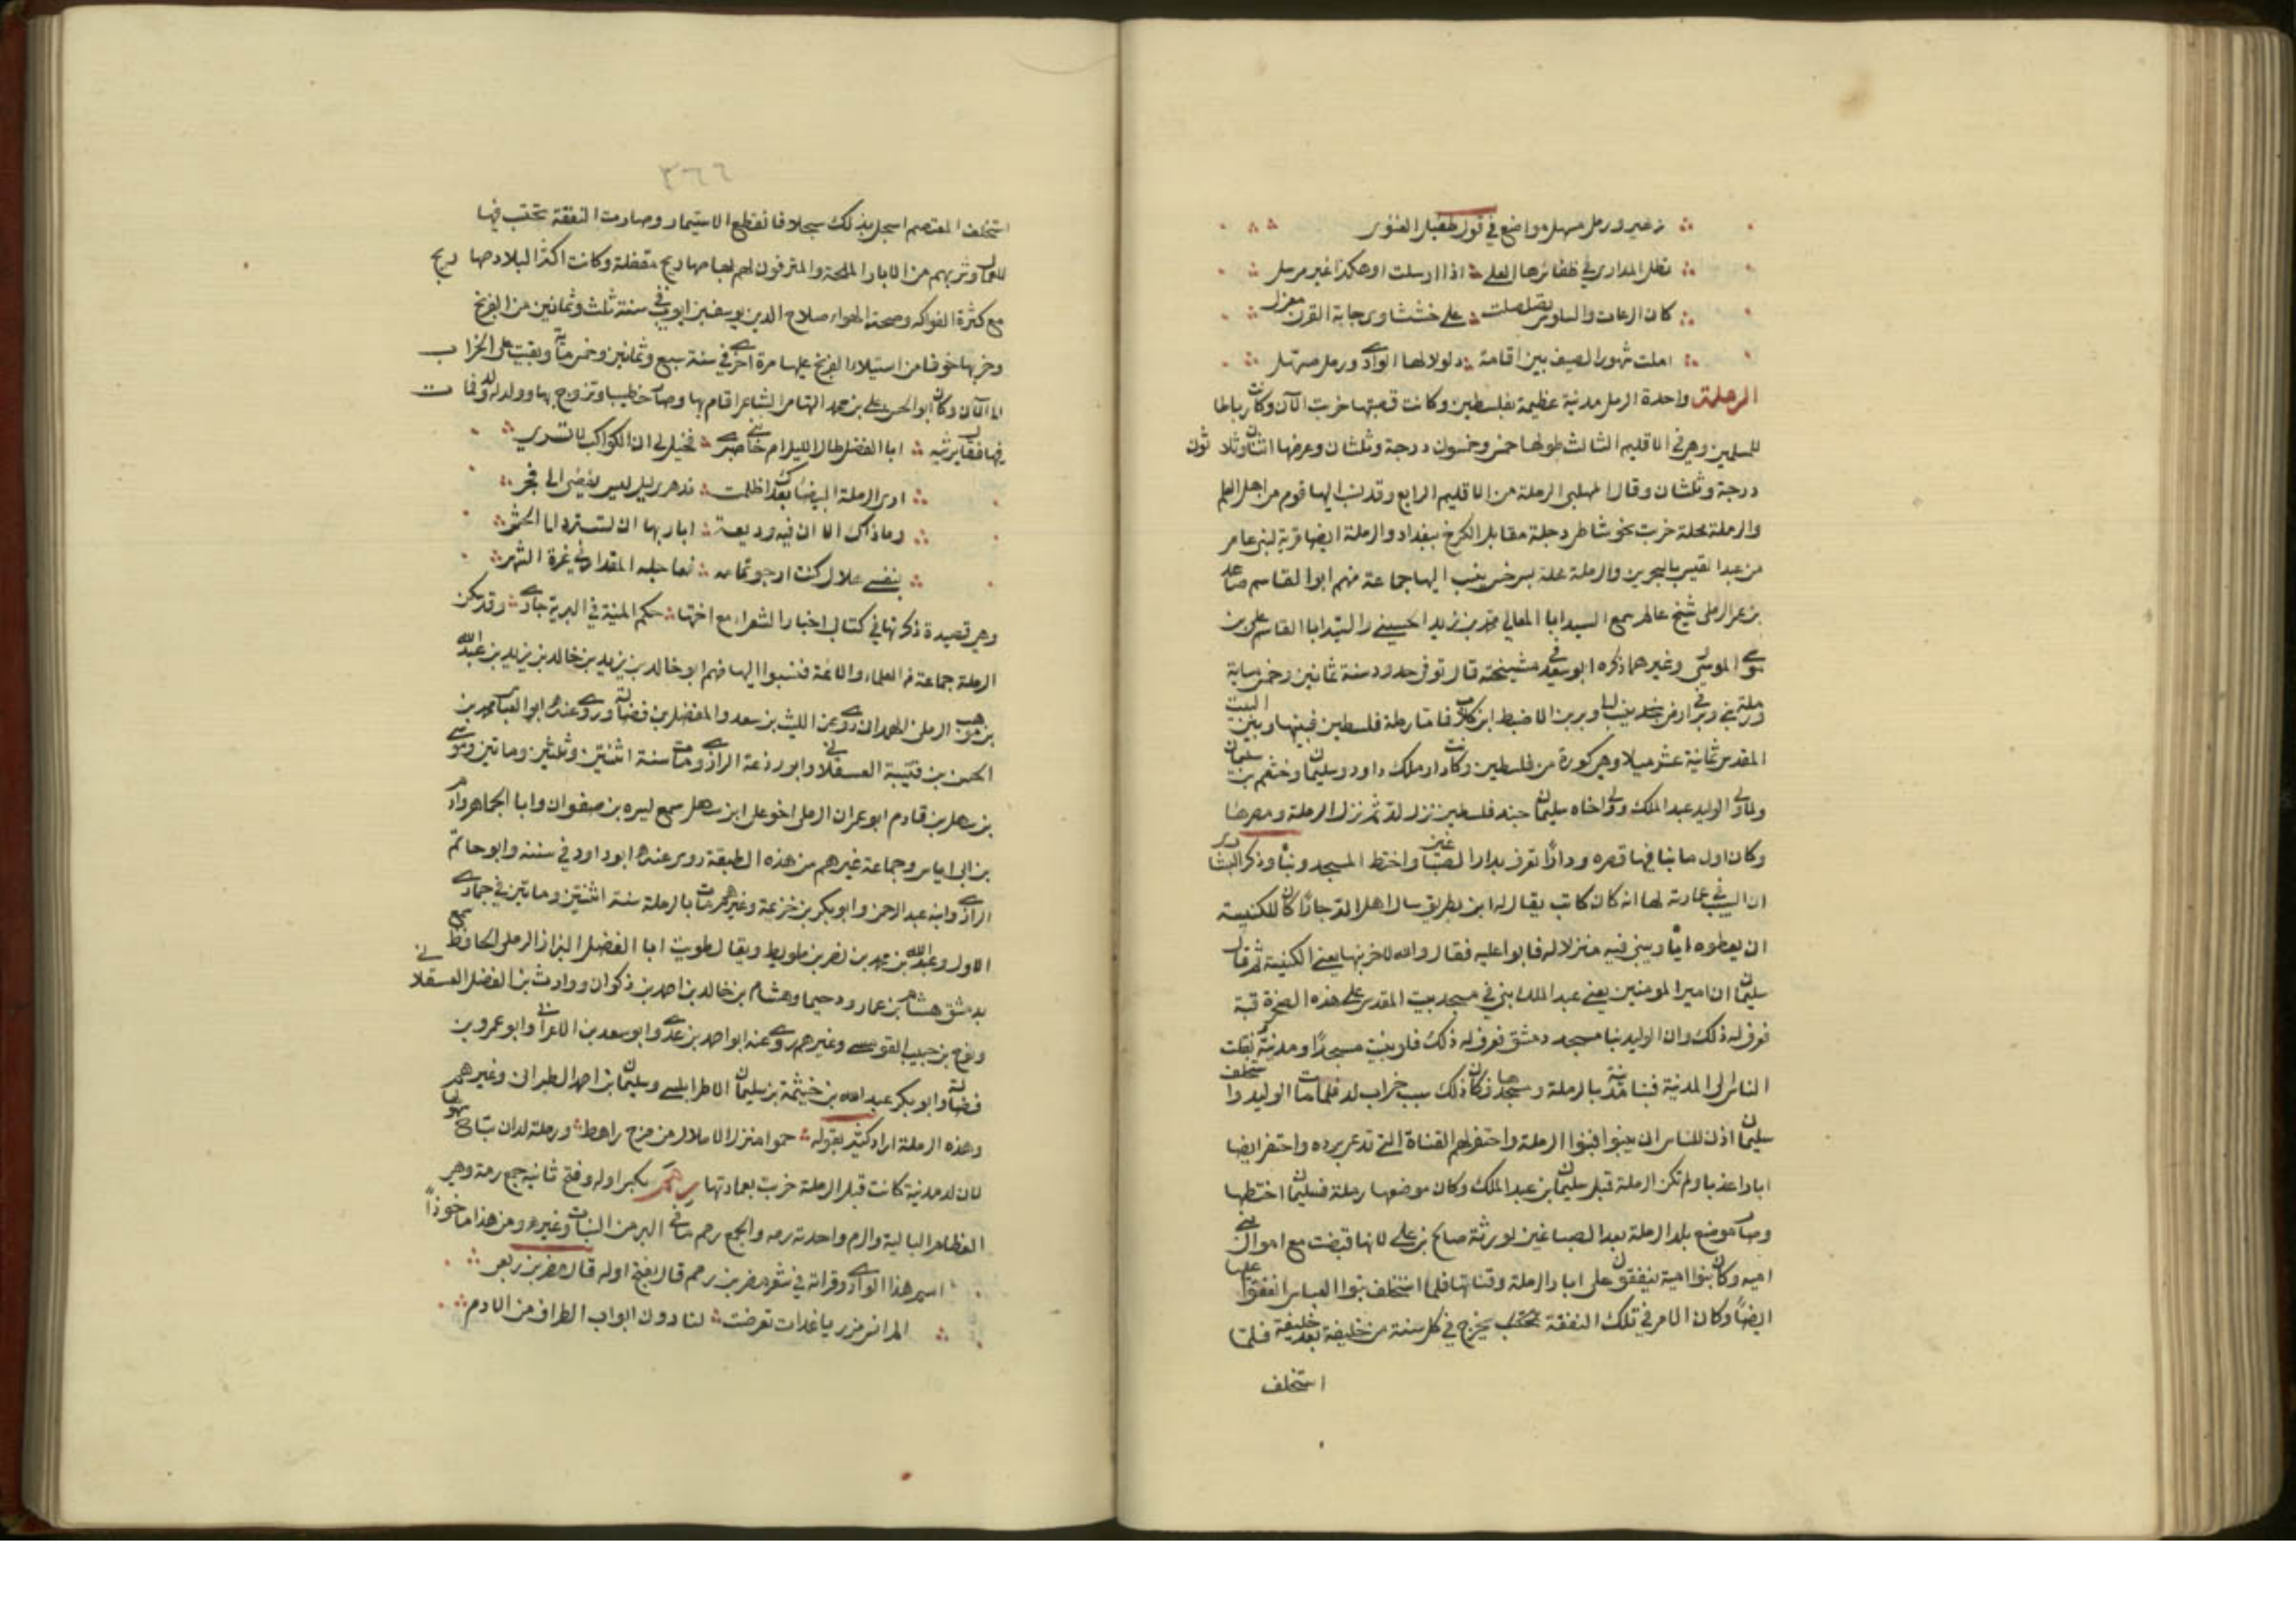 زعير ورمل صهله واضع في قول طفيل الغنوي
تظل المدارى في ظفائرها العلى اذا ارسلت او هكذا غير مرسل
كان الرعاث والسلوس تصلصلت على خششاوى جابة القرن مغزل
املت شهور الصيف بين اقامة ذلولا لها الوادي ورمل مسهل
الرملة واحدة الرمل مدينة عظيمة بفلسطين وكانت قصبتها خربت الآن وكانت رباطا
للمسلمين وهي في الاقليم الثالث طولها خمس وخمسون درجة وثلثان وعرضها اثنتان وثلاثون
درجة وثلثان وقال المهلبي الرملة من الاقليم الرابع وقد نسب اليها قوم من اهل العلم
والرملة محلة خربت نحو شاطى دجلة مقابل الكرخ ببغداد والرملة ايضا قرية لبني عامر
من عبد القيس بالبحرين والرملة محلة بسرخس ينسب اليها جماعة منهم ابو القاسم صاعد
بن عمر الرملي شيخ عالم سمع السيد ابا المعالي محمد بن زيد الحسيني والسيد ابا القاسم علي بن
موسى الموسوي وغيرهما ذكره ابو سعد في مشيخته قال توفي حدود سنة ثمانين وخمسماية
ورملة بني وبر في ارض نجد ينسب الى وبر بن الاضبط ابن كلاب فاما رملة فلسطين فبينها وبين البيت
المقدس ثمانية عشر ميلا وهي كورة من فلسطين وكانت دار ملك داود وسليمان ورخبعم بن سليمان
ولما ولي الوليد عبد الملك وولى اخاه سليمان جند فلسطين نزل لد ثم نزل الرملة ومصرها
وكان اول ما بنا فيها قصره ودارا تعرف بدار الصباغين واختط المسجد وبناه وذكر البشاري
ان السبب في عمارته لها انه كان كاتب يقال له ابن بطريق سال اهل لد جارا كان للكنيسة
ان يعطوه اياه ويبني فيه منزلا له فابوا عليه فقال والله لاخربنها يعني الكنيسة ثم قال
سليمان ان امير المومنين يعني عبد الملك بنى في مسجد بيت المقدس على هذه الصخرة قبة
فعرف له ذلك وان الوليد بنا مسجد دمشق فعرف له ذلك فلو بنيت مسجدا ومدينة ونقلت
الناس الى المدينة فبنا مدينة بالرملة ومسجدها فكان ذلك سبب خراب لد فلما مات الوليد واستخلف
سليمان اذن للناس ان يبنوا فبنوا الرملة واحتفر لهم القناة التي تدعى برده واحتفر ايضا
ابارا عذبا ولم تكن الرملة قبل سليمان بن عبد الملك وكان موضعها رملة فسليمان اختطها
وصار موضع بلد الرملة بعد الصباغين لورثة صالح بن علي لانها قبضت مع اموال بني
اميه وكان بنو امية ينفقون على ابار الرملة وقناتها فلما استخلف بنوا العباس انفقوا عليها
ايضا وكان الامر في تلك النفقة يحتسب يخرج في كل سنة من خليفة بعد خليفة فلما
استخلف
٣٦٦
استخلف المعتصم اسجل بذلك سجلا فانقطع الاستيمار وصارت النفقة يحتسب فيها
للعمال وشربهم من الابار الملحة والمترفون لهم بها صهاريج مقفلة وكانت اكثر البلاد صهاريج
مع كثرة الفواكه وصحة الهواء صلاح الدين يوسف بن ايوب في سنة ثلث وثمانين من الفرنج
وخربها خوفا من استيلاء الفرنج عليها مرة اخرى في سنة سبع وثمانين وخمس مائة وبقيت على الخراب
الى الآن وكان ابو الحسن علي بن محمد التهامي الشاعر اقام بها وصار خطيبا وتزوج بها وولد له ولد فمات
فيها فقال يرثيه ابا الفضل طال الليل ام خانني صبري فخيل لي ان الكواكب لا تسري
ارى الرملة البيضاء بعدك اظلمت فدهري ليل ليس يفضي الى فجر
وما ذاك الا ان فيه وديعة ابا ربها ان تسترد الى الحشر
بنفسي هلال كنت ارجو تمامه فعاجله المقدار في غرة الشهر
وهي قصيدة ذكرتها في كتاب اخبار الشعراء مع اختها حكم المنية في البرية جاري وقد سكن
الرملة جماعة من العلماء والائمة فنسبوا اليها منهم ابو خالد بن يزيد بن خالد بن يزيد بن عبد الله
بن موهب الرملي الهمداني روى عن الليث بن سعد والمفضل بن فضالة وروى عنه ابو العباس محمد بن
الحسن بن قتيبة العسقلاني وابو زرعة الرازي ومات سنة اثنتين وثلثين وماتين وموسى
بن سهل بن قادم ابو عمران الرملي اخو علي ابن سهل سمع ليره بن صفوان وابا الجماهر وادم
بن ابي اياس وجماعة غيرهم من هذه الطبقة روى عنه ابو داود في سننه وابو حاتم
الرازي وابنه عبد الرحمن وابو بكر بن خزيمة وغيرهم مات بالرملة سنة اثنتين وماتين في جمادى
الاول وعبد الله بن محمد بن نصر بن طويط ويقال طويث ابا الفضل البزاز الرملي الحافظ سمع
بدمشق هشام بن عمار ودحيما وهشام بن خالد بن احمد بن ذكوان ووارث بن الفضل العسقلاني
ونوح بن حبيب القومسي وغيرهم روى عنه ابو احمد بن عدي وابو سعد بن الاعرابي وابو عمرو بن
فضالة وابو بكر عبد الله بن خيثمة بن سليمان الاطرابلسي وسليمان بن احمد الطبراني وغيرهم
وهذه الرملة اراد كثير بقوله حموا منزل الاملاك من مرج راهط ورملة لدان تباح سهولها
لان لد مدينة كانت قبل الرملة خربت بعمارتها رمم بكسر اوله وفتح ثانيه جمع رمة وهي
العظام البالية والرم واحدته رمه والجمع رمم ما في البر من النبات وغيره ومن هذا ماخوذا
اسم هذا الوادي وقراته في شعر مضرس بن رمم قال بفتح اوله قال مضرس بن ربعي
لنا دون ابواب الطراف من الادم